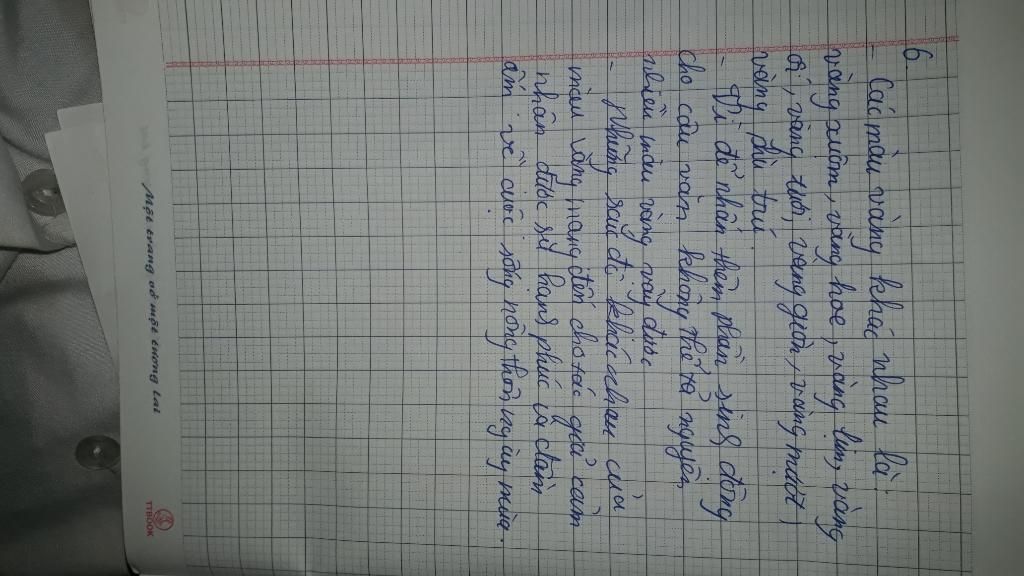 6
- Các màu vàng khác nhau là:
vàng xuộm, vàng hoe, vàng lịm, vàng
ối, vàng tươi, vàng giòn, vàng mượt,
vàng
- Vì để nhấn thêm phần sinh động
cho câu văn không thể tả nguyên
nhiều màu vàng vậy được
- Những sắc độ khác nhau của
màu vàng mang đến cho tác giả cảm
nhận được sự hạnh phúc và đầm
ấm về cuộc sống nông thôn ngày mùa.
Một trang vở một tương lai
TTBOOK